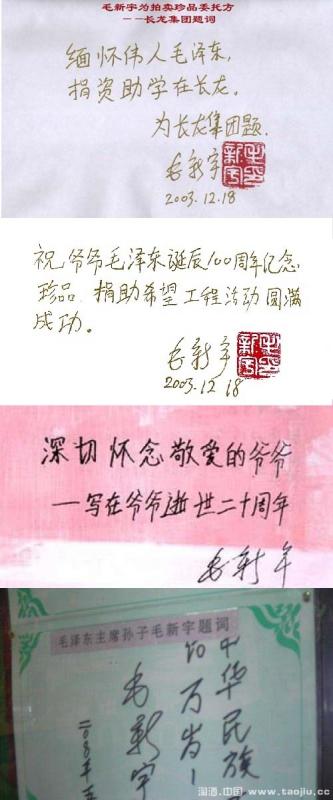 毛新宇为拍卖珍品委托方
——长龙集团题词
缅怀伟人毛泽东,
捐资助学在长龙。
为长龙集团题.
毛新宇
2003.12.18
祝爷爷毛泽东诞辰100周年纪念
珍品 捐助希望工程活动圆满
成功。
毛新宇
2003.12.18
深切怀念敬爱的爷爷
—写在爷爷逝世二十周年
毛新宇
毛泽东主席孙子毛新宇题词
中华民族
万岁!
毛新宇
淘酒.中国 www.taojiu.cc